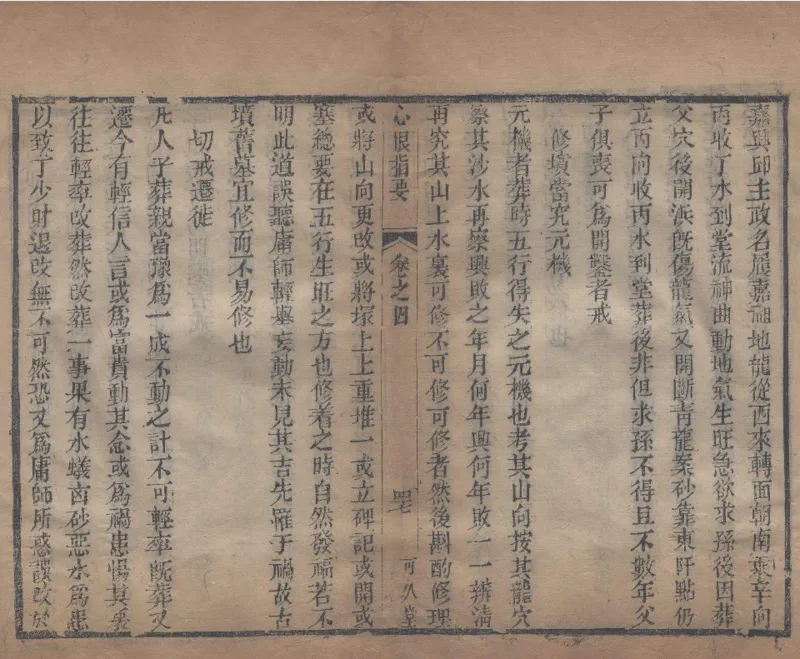 嘉興邱主政名履嘉祖地龍從西來轉面朝南乘辛向
丙收丁水到堂流神曲動地氣生旺急欲求孫後因葬
父穴後開浜旣傷龍氣又開斷靑龍案砂靠東阡點仍
立丙向收丙水到堂葬後非但求孫不得且不數年父
子俱喪可爲開鑿者戒
修墳當究元機
元機者葬時五行得失之元機也考其山向按其龍穴
察其沙水再察興敗之年月何年興何年敗一一辨淸
再究其山上水裏可修不可修可修者然後斟酌修理
心眼指要
卷之四
可久堂
或將山向更改或將塚上上重堆一或立碑記或開或
塞總要在五行生旺之方也修着之時自然發福若不
明此道誤聽庸師輕舉妄動未見其吉先罹于禍故古
墳舊墓宜修而不易修也
切戒遷徙
凡人子葬親當豫爲一成不動之計不可輕率旣葬又
遷今有輕信人言或爲富貴動其念或爲禍患惕其衷
往往輕率改葬然改葬一事果有水蟻凶砂惡水爲患
以致丁少財退改無不可然恐又爲庸師所惑誤改於